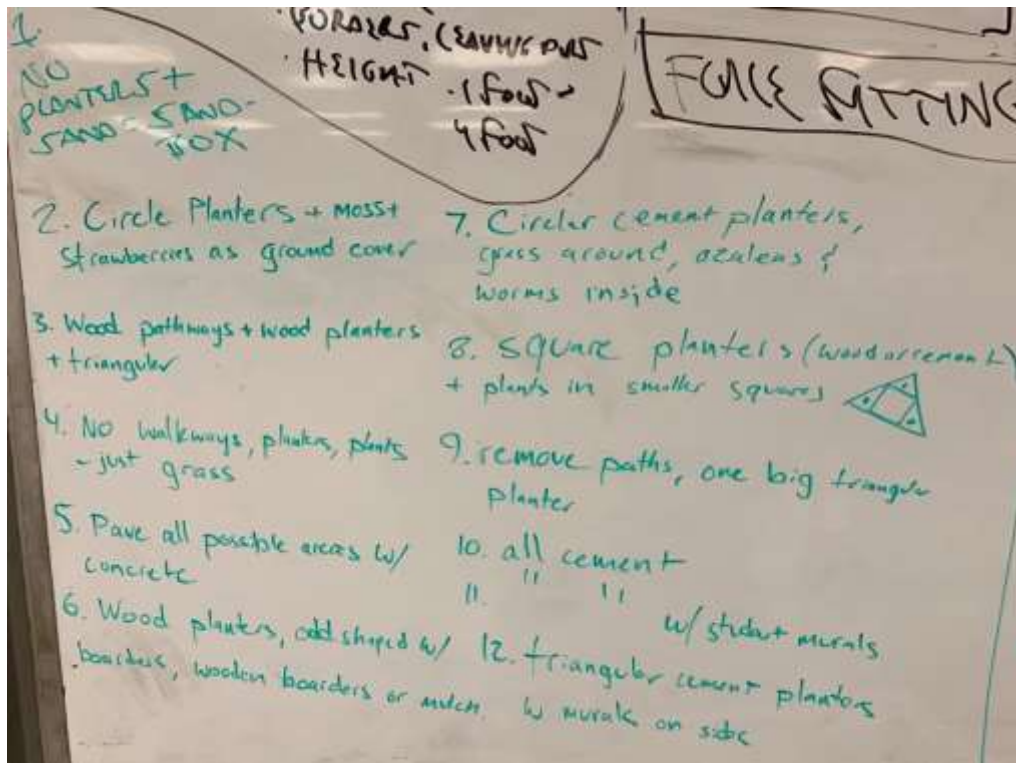 BORDERS, LEAVING OUT
· HEIGHT · 1 FOOT -
4 FOOT
FORCE FITTING
1.
NO
PLANTERS +
SAND = SAND-
BOX
2. Circle Planters + moss +
strawberries as ground cover
3. Wood pathways + wood planters
+ triangular
4. No walkways, planters, plants
- just grass
5. Pave all possible areas w/
concrete
6. Wood planters, odd shaped w/
boarders, wooden boarders or mulch.
7. Circler cement planters,
grass around, azaleas &
worms inside
8. square planters (wood or cement)
+ plants in smaller squares
9. remove paths, one big triangular
planter
10. all cement
11. " " w/ student murals
12. triangular cement planters
w murals on sides